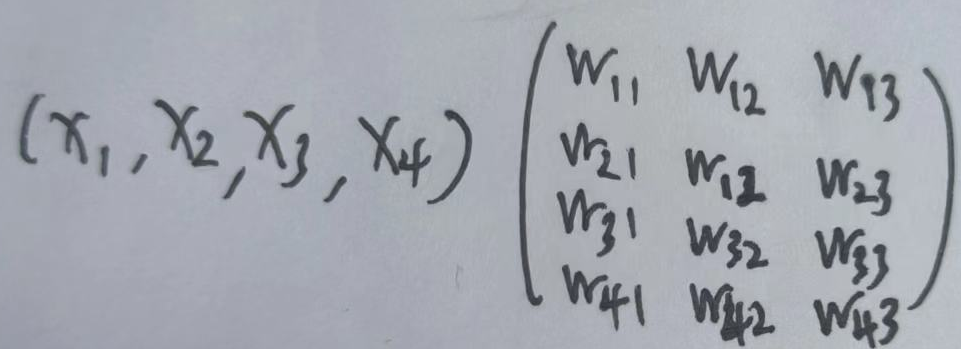 (x₁, x₂, x₃, x₄) ( W₁₁ W₁₂ W₁₃
W₂₁ W₁₂ W₂₃
W₃₁ W₃₂ W₃₃
W₄₁ W₄₂ W₄₃ )